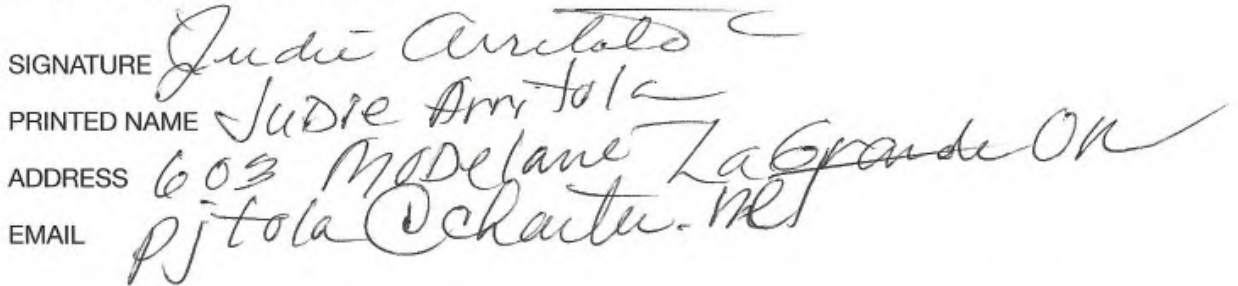 SIGNATURE Judie Arritola
PRINTED NAME JuDie Arritola
ADDRESS 603 MODelane LaGrande OR
EMAIL pjtola@charter.net